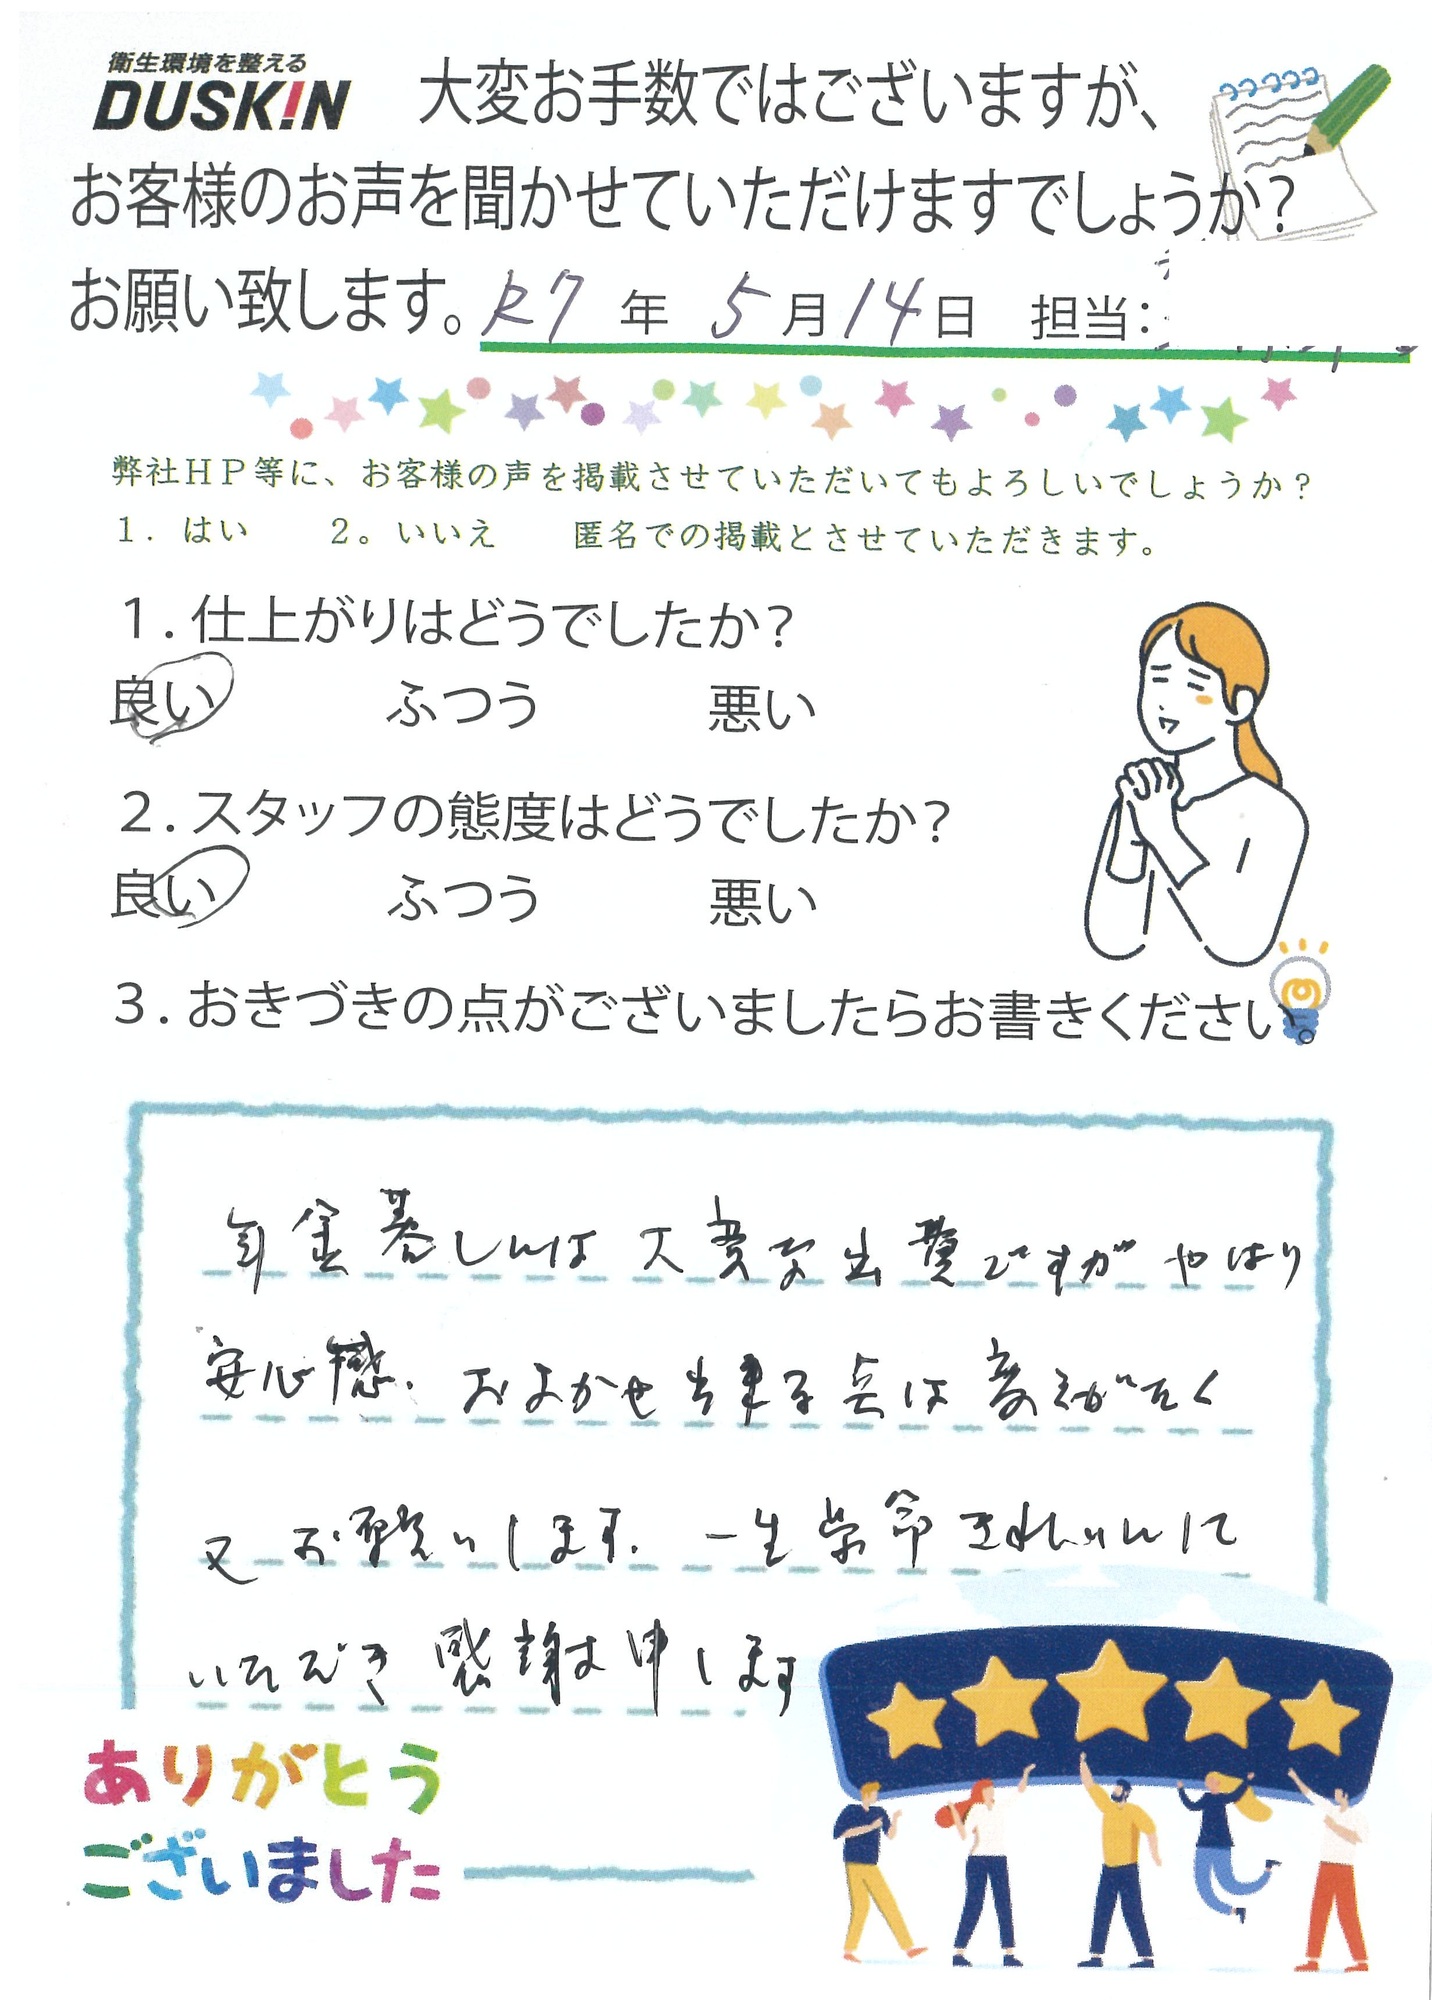 衛生環境を整える
DUSKIN
大変お手数ではございますが、
お客様のお声を聞かせていただけますでしょうか?
お願い致します。R7 年 5 月 14 日 担当:
弊社HP等に、お客様の声を掲載させていただいてもよろしいでしょうか?
1. はい 2。いいえ 匿名での掲載とさせていただきます。
1. 仕上がりはどうでしたか?
良い ふつう 悪い
2. スタッフの態度はどうでしたか?
良い ふつう 悪い
3. おきづきの点がございましたらお書きください。
年金暮しには大変な出費ですがやはり
安心感、おまかせ出来る点は変えがたく
又お願いします。一生懸命きれいにして
いただき感謝申します
ありがとう
ございました